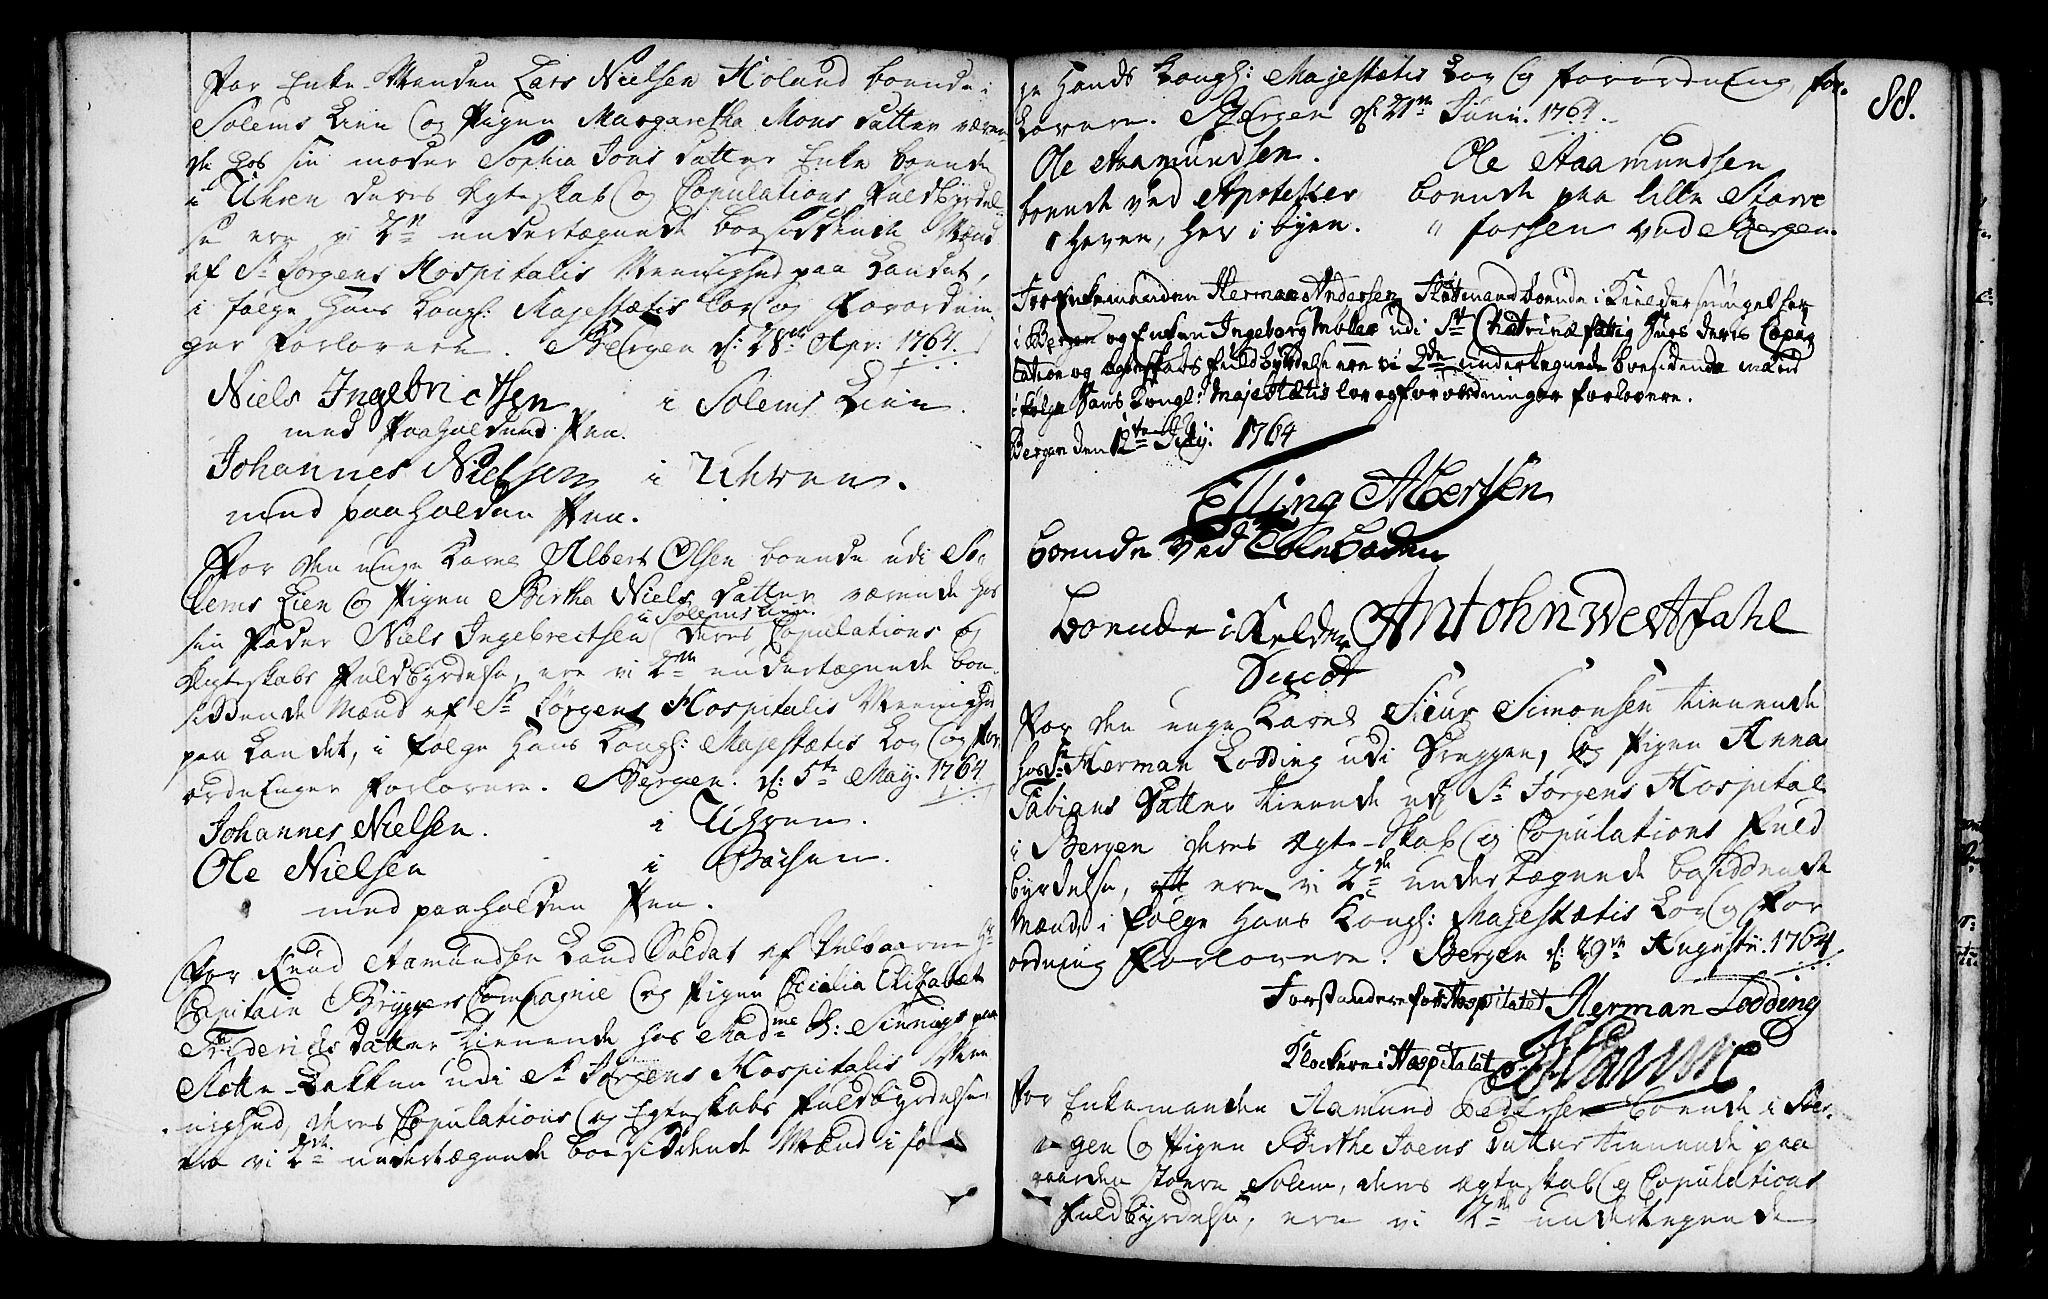 For Enke-Manden Lars Nielsen Holand boende i
Solems Lien og Pigen Margaretha Mons datter væren-
de hos sin moder Sophia Jons datter Enke boende
i Uhren deres Ægteskab og Copulations Fuldbyrdel-
se ere vi 2de undertægnede boesiddende Mænd
af St Jørgens Hospitalis Meenighed paa Landet,
i følge Hans Kongl: Majestætis lov og Forordnin-
ger Forlovere. Bergen d: 28de Apr: 1764.
Niels Ingebrictsen i Solems Lien.
med Paaholdend Pen.
Johannes Nielsen i Uhren.
med paaholden Pen.
For den unge Karl Albert Olsen boende udi So-
lems Lien og Pigen Birtha Niels datter værende hos
i Solems Lien.
sin Fader Niels Ingebrectsen deres Copulations og
Ægteskabs Fuldbyrdelse, ere vi 2de undertægnede boe-
siddende Mænd af St Jørgens Hospitalis Meenighed
paa Landet, i følge Hans Kongl: Majestætis Lov og For-
ordninger Forlovere. Bergen. d: 5te May. 1764
Johannes Nielsen. i Uhren.
Ole Nielsen i
med paaholden Pen.
For Knud Aamundsen Land Soldat af Velbaarne Hr
Capitain Bryggers Compagnie og Pigen Cicilia Elizabet
Friderichs datter tienende hos Madme S: Sinnings paa
Støtte-Bakken udi St Jørgens Hospitalis Mee
nighed, deres Copulations og Egteskabs Fuldbyrdelse
ere vi 2de undertægnede boesiddende Mænd i føl
88.
ge Hands Kongl: Majestætis Lov og forordning for-
lovere. Bergen d: 21de Junii. 1764.
Ole Aamundsen. Ole Aaamundsen
boende ved Apoteker boende paa lille Starre
haven, her i byen. forssen ved Bergen.
For Enkemanden Herman Andersen boende i Kielder smuget her
i Bergen og Enken Ingeborg Møller udi St Chatrinæ fattig Huus deres Copu
lation og ægteskabs fuldbyrdelse ere vi 2de undertegnede boesidende mænd
i følge Hans Kongl: Majestætis lov og forordninger forlovere.
Bergen den 12te July: 1764
Elling Albersen
boende ved
boende i Kelder Antohn Westfahl
Smuet
For den unge Karl Siur Simonsen tienende
hos Sr Herman Lodding udi Dreggen, og Pigen Anna
Fabians Datter tienende udj St Jørgens Hospital
i Bergen deres Ægte-skab og Copulations Fuld
byrdelse, ere vi 2de undertægnede bosiddende
Mænd, i følge Hans Kongl: Majestætis Lov og For
ordning Forlovere. Bergen d: 29de Augustii. 1764
Forstandere for Hospitalet Herman Lodding
Klockere i Hospitalet
For Enkemanden Aamund Pedersen boende i Ber-
gen og Pigen Birthe Joens datter tienende paa
gaarden stoere Solem, deres Ægteskab og Copulations
Fuldbyrdelse, ere vi 2de undertegnede